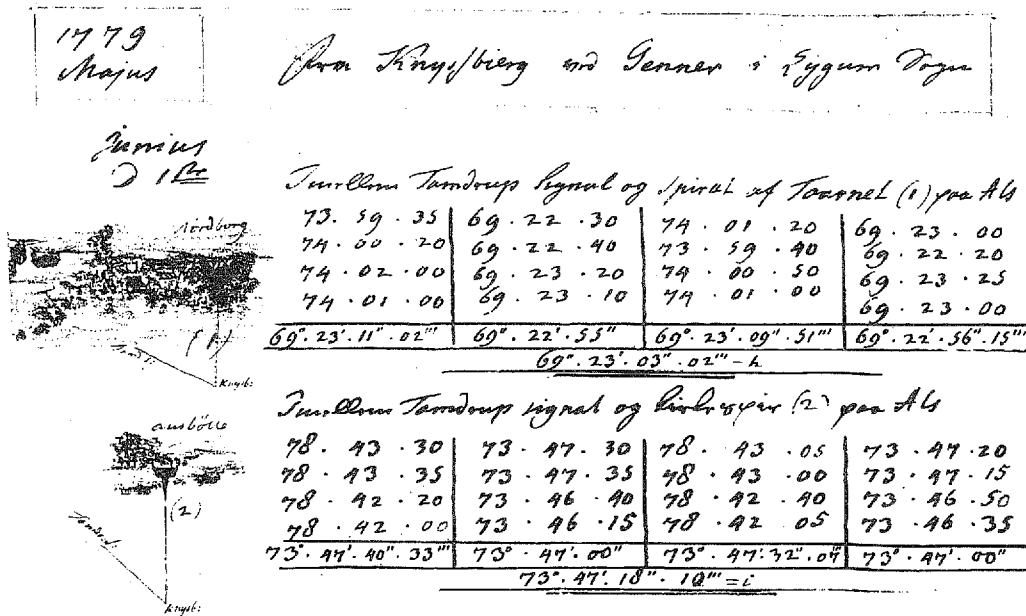 1779
Majus
fra Knysbierg ved Genner i Øygum Sogn
Junius
D 1ste
Imellem Tamdrup Signal og Spiral af Taarnet (1) paa Als
Nordborg
73. 59. 35 69. 22. 30 74. 01. 20 69. 23. 00
74. 00. 20 69. 22. 40 73. 59. 40 69. 22. 20
74. 02. 00 69. 23. 20 74. 00. 50 69. 23. 25
74. 01. 00 69. 23. 10 74. 01. 00 69. 23. 00
69°. 23'. 11". 02"' 69°. 22'. 55" 69°. 23'. 09". 51"' 69°. 22'. 56". 15"'
69°. 23'. 03". 02"' - h
(1)
Knysb:
Imellem Tamdrup signal og kirkespir (2) paa Als
ausbölle
78. 43. 30 73. 47. 30 78. 43. 05 73. 47. 20
78. 43. 35 73. 47. 35 78. 43. 00 73. 47. 15
78. 42. 20 73. 46. 40 78. 42. 40 73. 46. 50
78. 42. 00 73. 46. 15 78. 42. 05 73. 46. 35
73°. 47'. 40". 33"' 73°. 47'. 00" 73°. 47'. 32". 07"' 73°. 47'. 00"
73°. 47'. 18". 10"' = i
(2)
Tamdrup
Knysb: